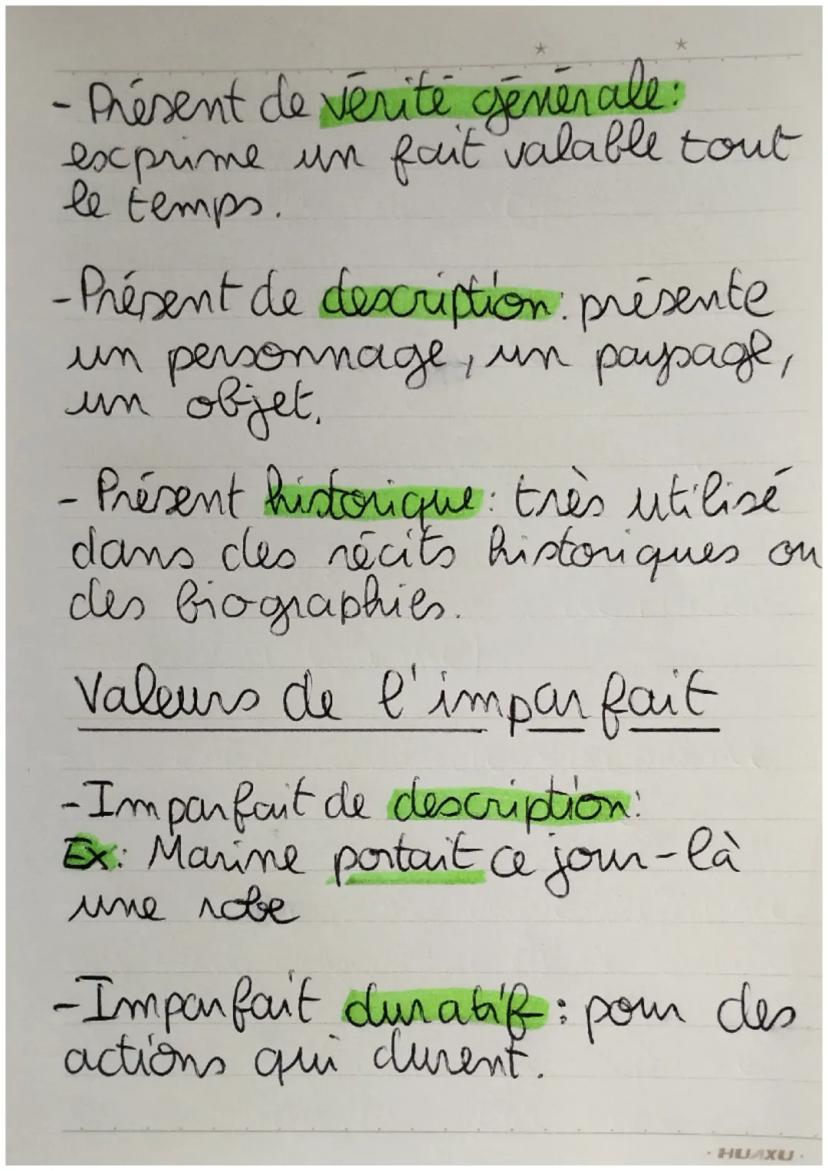 - Présent de vérité générale:
exprime un fait valable tout
le temps.
- Présent de description: présente
un personnage, un paysage,
un objet.
- Présent historique: très utilisé
dans des récits historiques ou
des biographies.
Valeurs de l'imparfait
- Imparfait de description:
Ex: Marine portait ce jour-là
une robe
- Imparfait duratif: pour des
actions qui durent.
· HUAXU ·